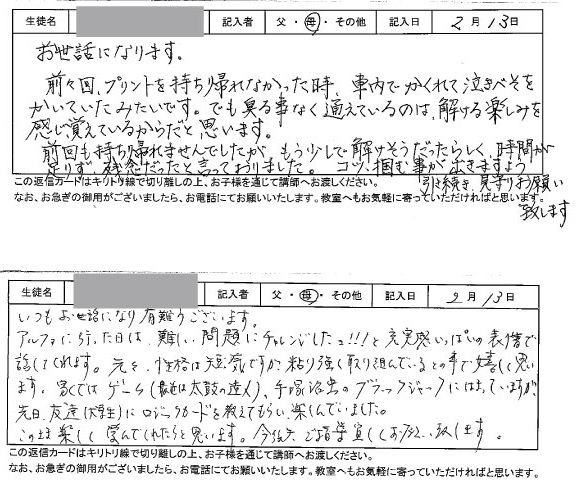 生徒名 記入者 父・母・その他 記入日 2月13日
お世話になります。
前々回、プリントを持ち帰れなかった時、車内でかくれて泣きべそを
かいていたみたいです。でも臭る事なく通えているのは、解ける楽しみを
感じ覚えているからだと思います。
前回も持ち帰れませんでしたが、もう少しで解けそうだったらしく、時間が
足りず、残念だったと言っておりました。コツ、掴む事が出きますよう
引き続き、見守りお願い
致します
この返信カードはキリトリ線で切り離しの上、お子様を通じて講師へお渡しください。
なお、お急ぎの御用がございましたら、お電話にてお願いいたします。教室へもお気軽に寄っていただければと思います。
生徒名 記入者 父・母・その他 記入日 2月13日
いつもお世話になり有難うございます。
アルファに行った日は、難しい問題にチャレンジしたョ!!!と充実感いっぱいの表情で
話してくれます。元々、性格は短気ですが、粘り強く取り組んでいるとの事で嬉しく思い
ます。家ではゲーム(最近は太鼓の達人)、手塚治虫のブラックジャックにはまっていますが、
先日、友達(大学生)にロジックカードを教えてもらい、楽しんでいました。
このまま楽しく学んでくれたらと思います。今後共、ご指導宜しくお願い致します。
この返信カードはキリトリ線で切り離しの上、お子様を通じて講師へお渡しください。
なお、お急ぎの御用がございましたら、お電話にてお願いいたします。教室へもお気軽に寄っていただければと思います。